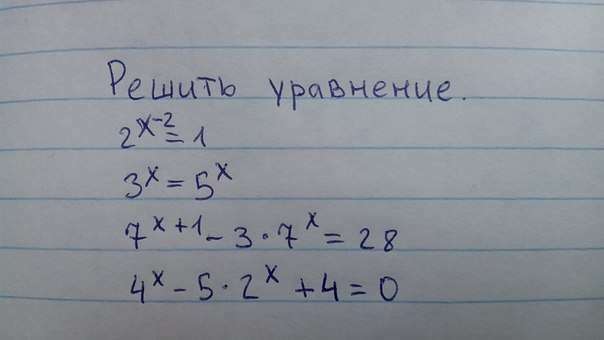 Решить уравнение.
2^{x-2} = 1
3^x = 5^x
7^{x+1} - 3 · 7^x = 28
4^x - 5 · 2^x + 4 = 0